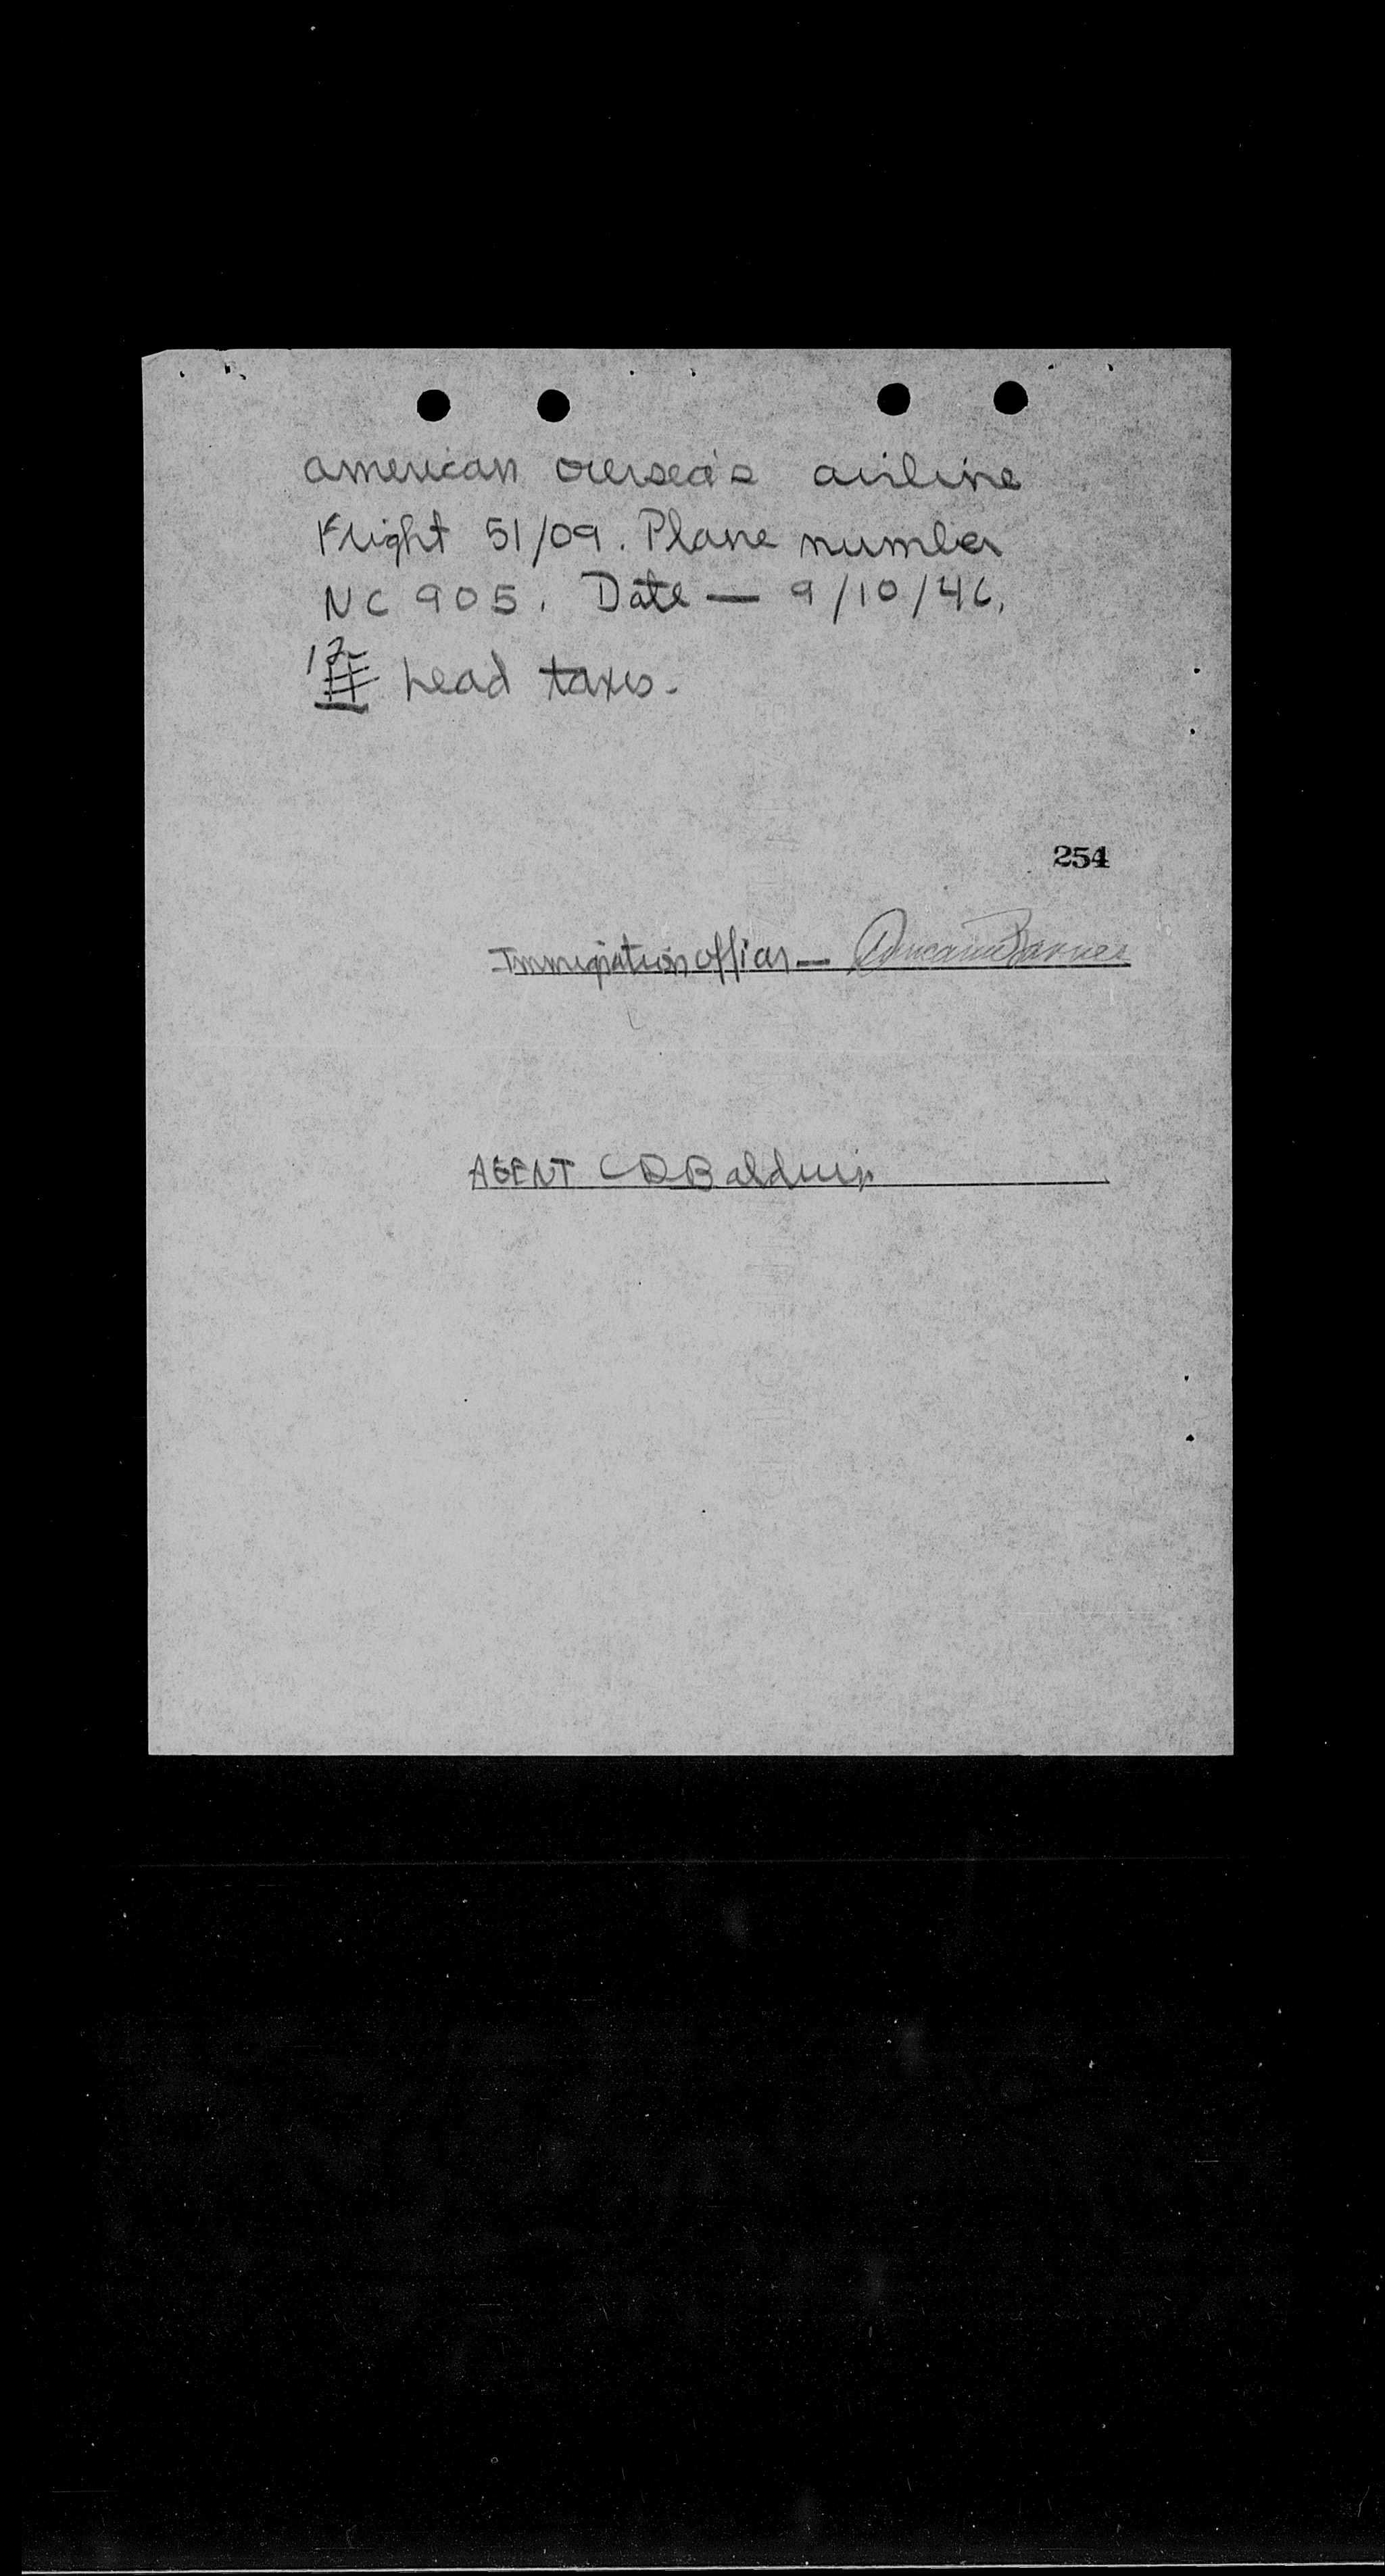 American oversea's airline
Flight 51/09. Plane number
NC 905. Date — 9/10/46.
12 head taxes.
254
Immigration Officer —
AGENT CDBaldwin